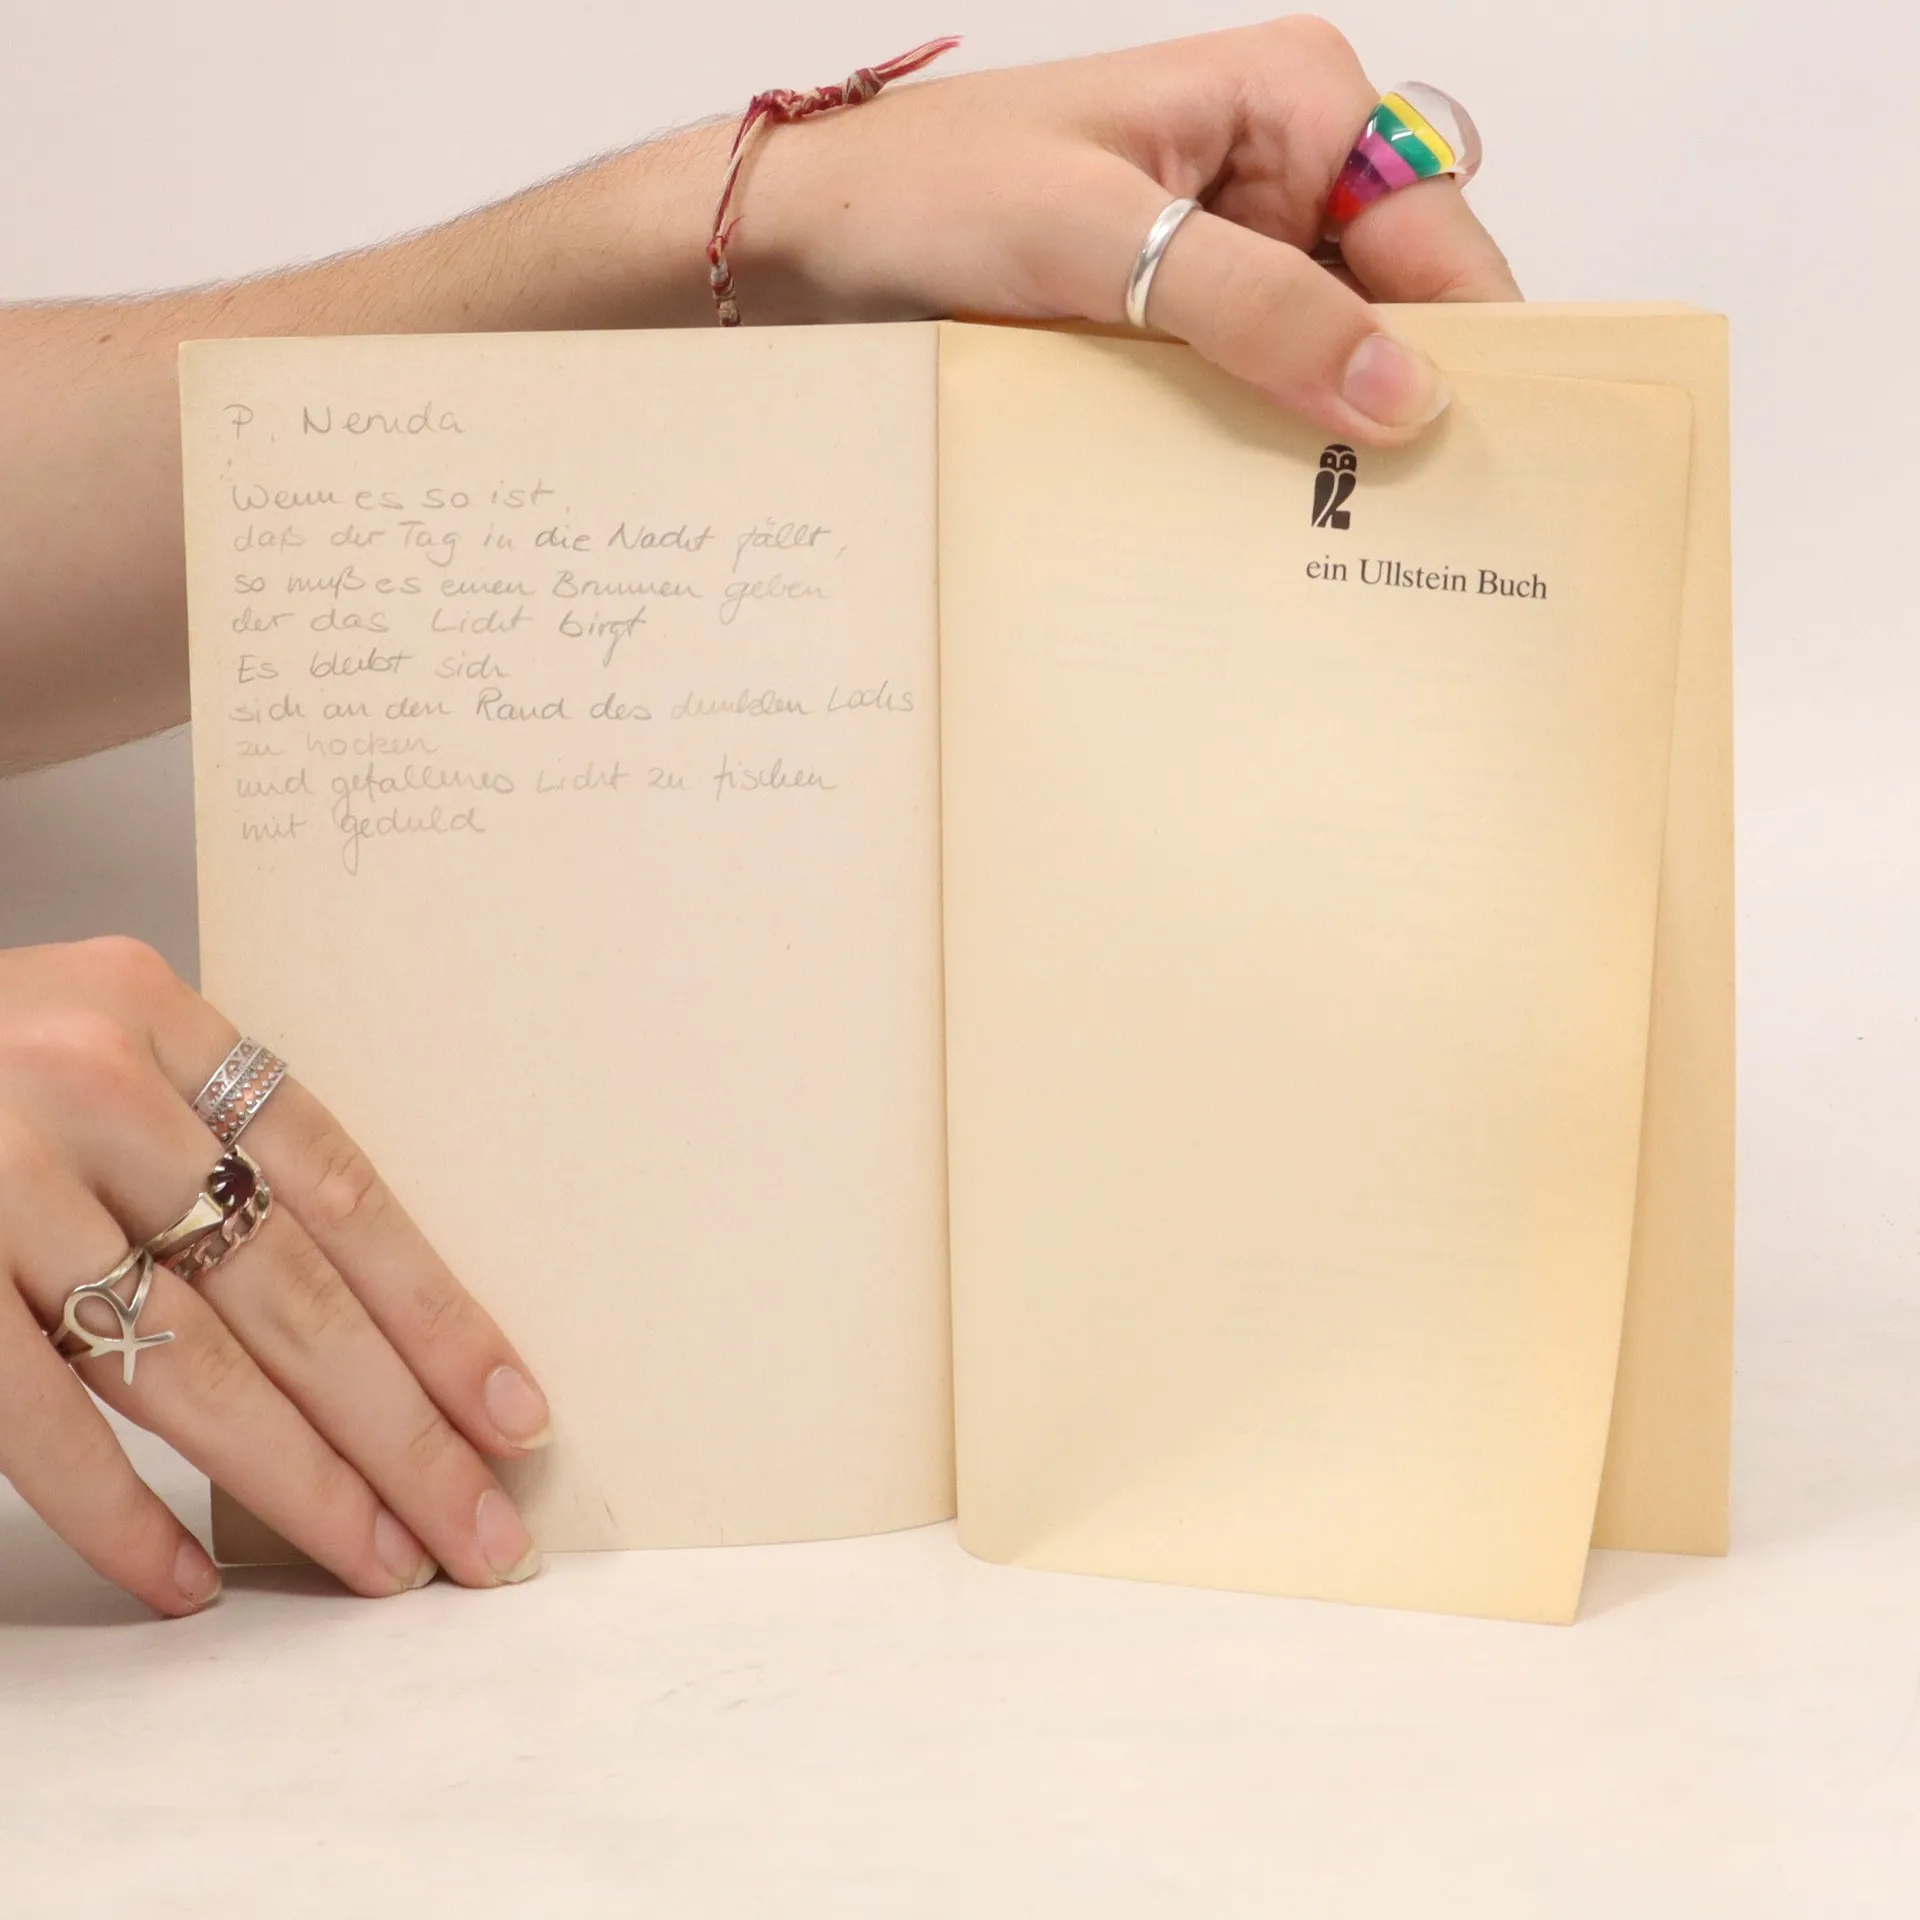 P. Neruda
Wenn es so ist,
daß der Tag in die Nacht fällt,
so muß es einen Brunnen geben
der das Licht birgt
Es bleibt sich
sich an den Rand des dunklen Lochs
zu hocken
und gefallenes Licht zu fischen
mit geduld
ein Ullstein Buch